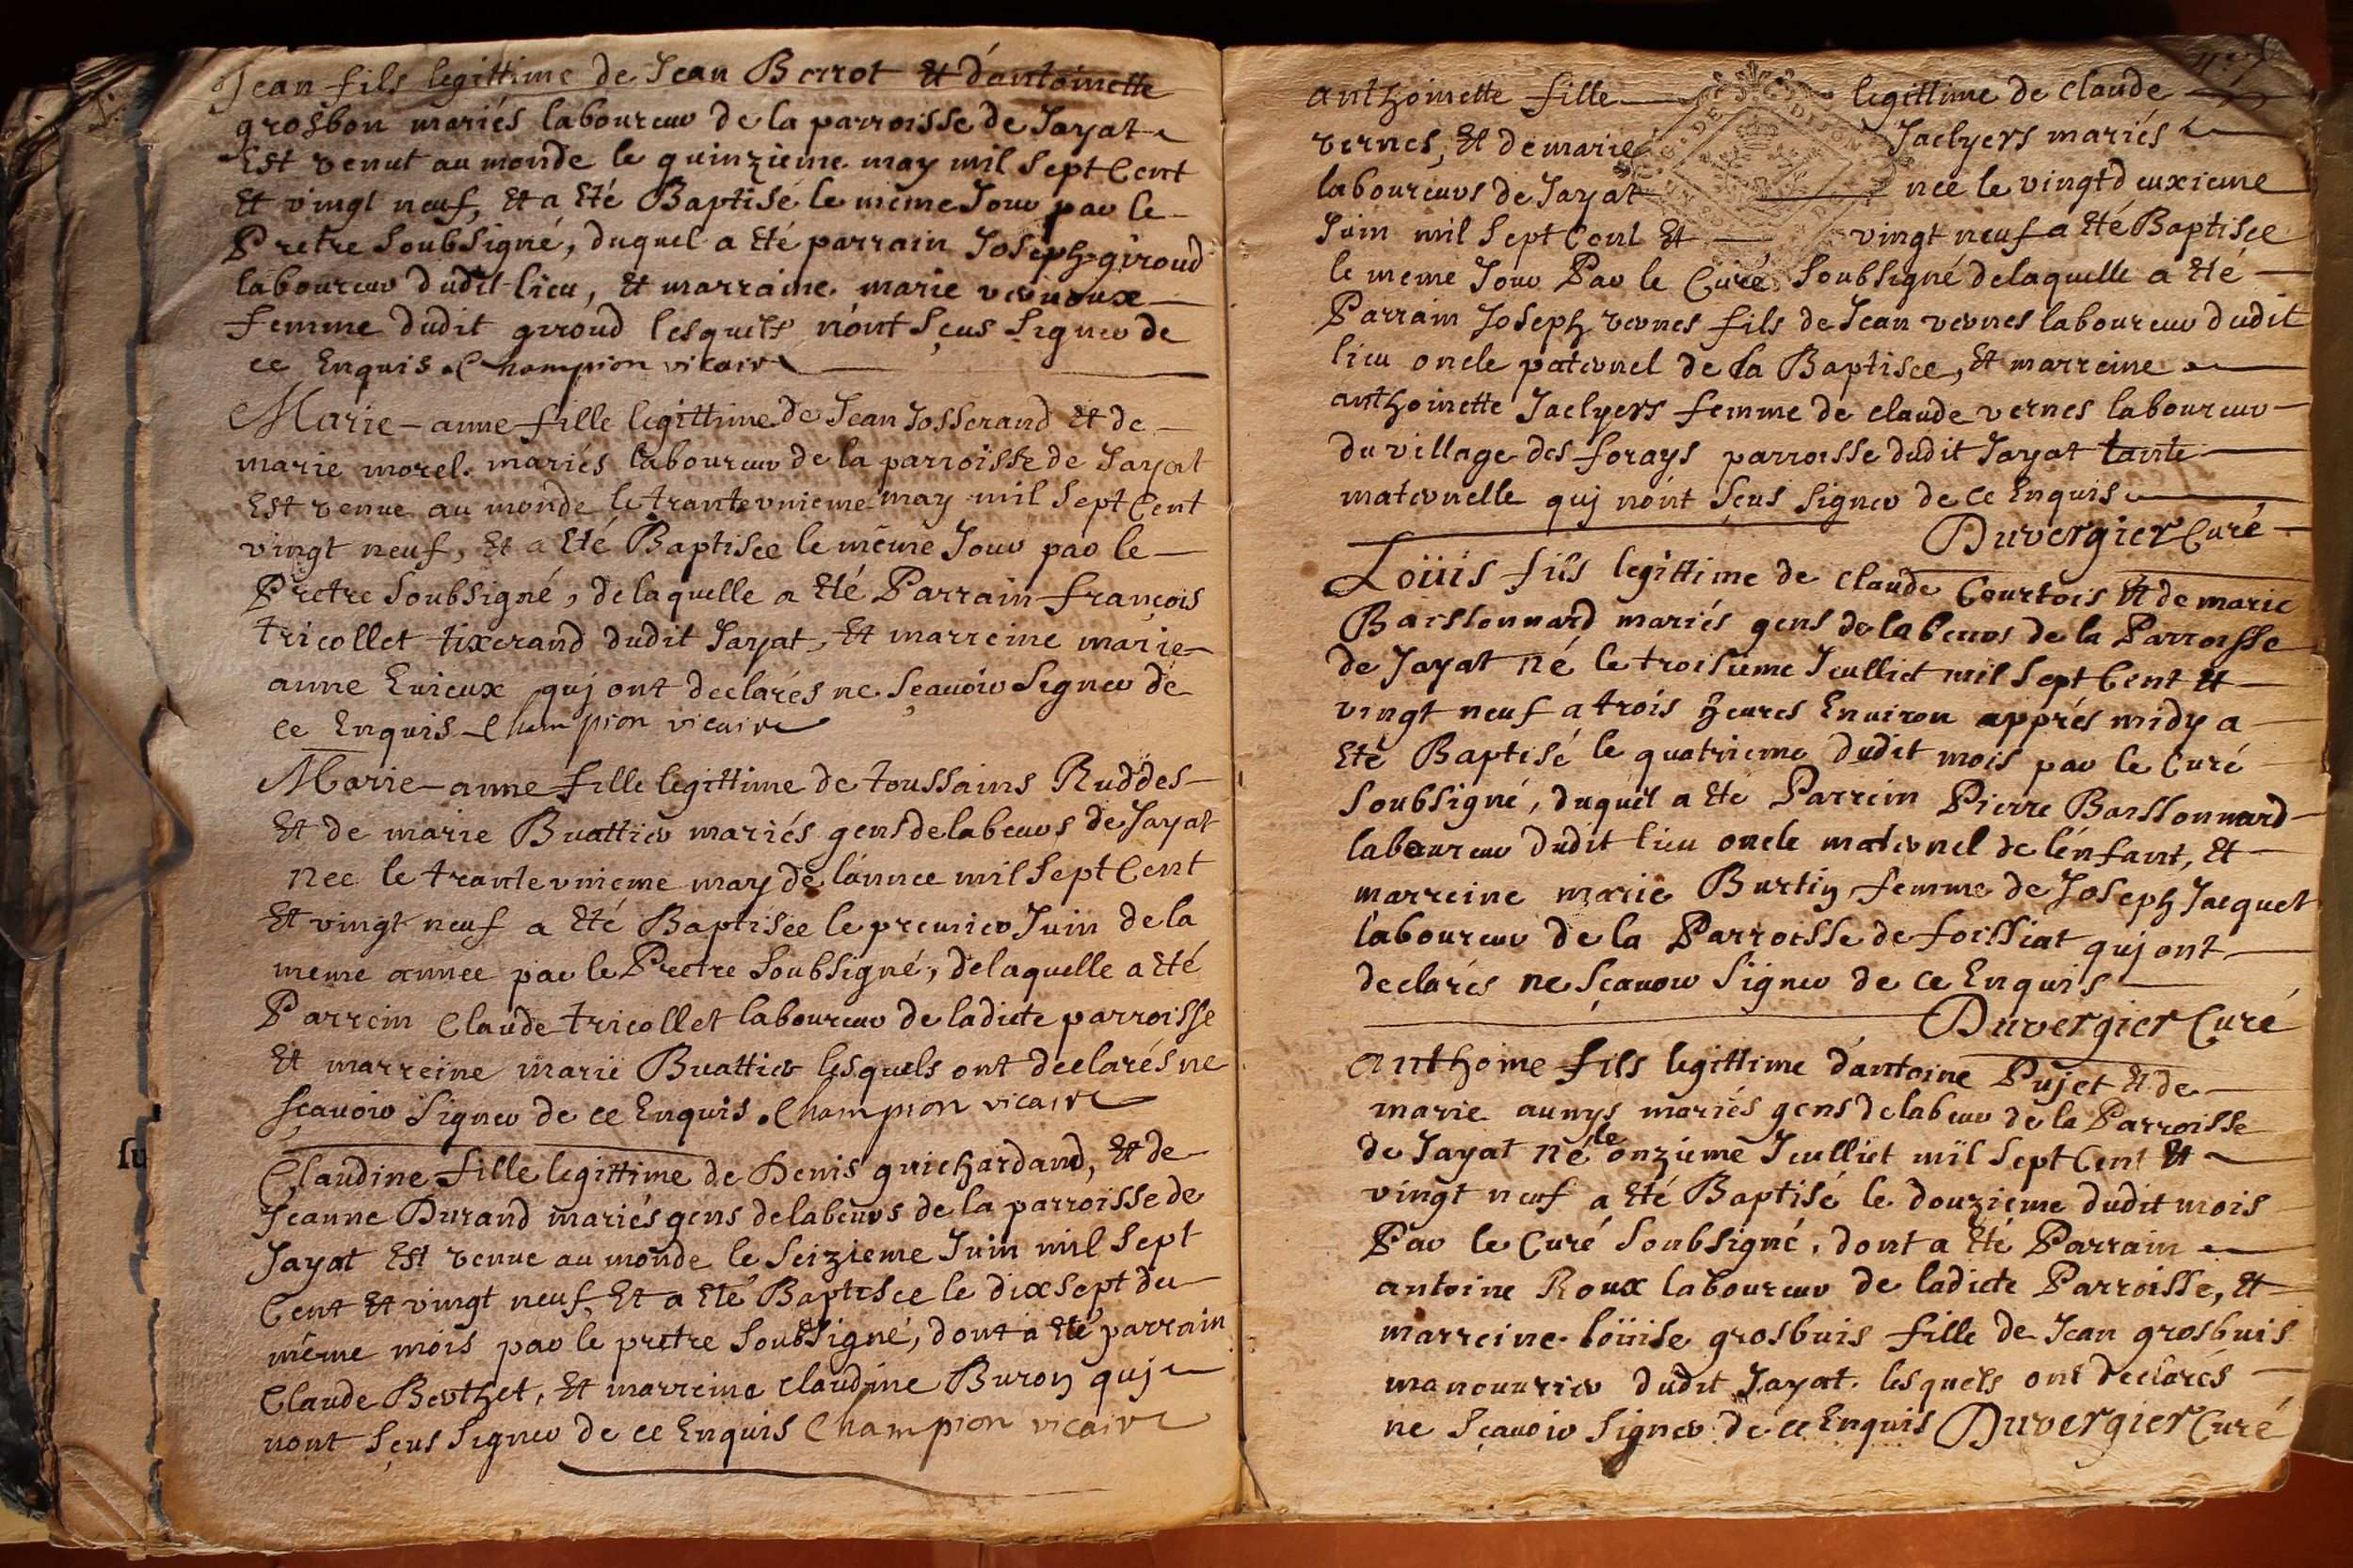 Jean fils legittime de Jean Berrot Et d'antoinette
grosbon mariés laboureur de la parroisse de Jayat
Est venut au monde le quinzieme may mil sept Cent
Et vingt neuf, Et a Eté Baptisé le meme Jour par le
Pretre soubsigné, duquel a Eté parrain Joseph giroud
laboureur dudit lieu, Et marraine marie
femme dudit giroud lesquels n'ont sçus signer de
ce Enquis. Champion vicaire
Marie-anne fille legittime de Jean Josserand Et de
marie morel mariés laboureur de la parroisse de Jayat
Est venue au monde le trantevnieme may mil sept Cent
vingt neuf, Et a Eté Baptisee le même Jour par le
Pretre soubsigné, delaquelle a Eté Parrain françois
tricollet tixerand dudit Jayat, Et marreine marie
anne Euieux quj ont declarés ne sçauoir signer de
ce Enquis Champion vicaire
Marie-anne fille legittime de toussains Ruddes
Et de marie Buattier mariés gens de labeurs de Jayat
nee le trantevnieme may de l'annee mil sept Cent
Et vingt neuf a Eté Baptisee le premier Juin de la
meme annee par le Pretre soubsigné, delaquelle a Eté
Parrein Claude tricollet laboureur de ladicte parroisse
Et marreine marie Buattier lesquels ont declarés ne
sçauoir signer de ce Enquis. Champion vicaire
su
Claudine fille legittime de Denis guichardand, Et de
Jeanne Durand mariés gens de labeurs de la parroisse de
Jayat Est venue au monde le seizieme Juin mil sept
Cent Et vingt neuf, Et a Eté Baptisee le dix sept du
même mois par le pretre soubsigné, dont a Eté parrain
Claude Berthet, Et marreine claudine Buron quj
nont sçus signer de ce Enquis Champion vicaire
anthoinette fille legittime de claude
vernes, Et de marie Jaelyers mariés
laboureurs de Jayat nee le vingt deuxieme
Juin mil sept Cent Et vingt neuf a Eté Baptisee
le meme Jour Par le Curé soubsigné delaquelle a Eté
Parrain Joseph vernes fils de Jean vernes laboureur dudit
lieu oncle paternel de la Baptisee, Et marreine
anthoinette Jaelyers femme de claude vernes laboureur
du village des forays parroisse dudit Jayat tante
maternelle quj n'ont sçus signer de ce Enquis
Duvergier Curé
Loüis fils legittime de claude Courtois Et de marie
Baissonnard mariés gens de labeurs de la Parroisse
de Jayat né le troisieme Jeulliet mil sept Cent Et
vingt neuf a trois heures Enuiron apprés midy a
Eté Baptisé le quatrieme dudit mois par le Curé
soubsigné, duquel a Eté Parrein Pierre Baissonnard
laboureur dudit lieu oncle maternel de l'énfant, Et
marreine marie Burtin femme de Joseph Jacquet
laboureur de la Parroisse de foissiat quj ont
declarés ne sçauoir signer de ce Enquis
Duvergier Curé
anthoine fils legittime d'antoine Pujet Et de
marie aunys mariés gens de labeur de la Parroisse
de Jayat né le onzieme Jeulliet mil sept Cent Et
vingt neuf a Eté Baptisé le douzieme dudit mois
Par le Curé soubsigné, dont a Eté Parrain
antoine Roux laboureur de ladicte Parroisse, Et
marreine loüise grosbuis fille de Jean grosbuis
manouurier dudit Jayat. lesquels ont declarés
ne sçauoir signer de ce Enquis Duvergier Curé